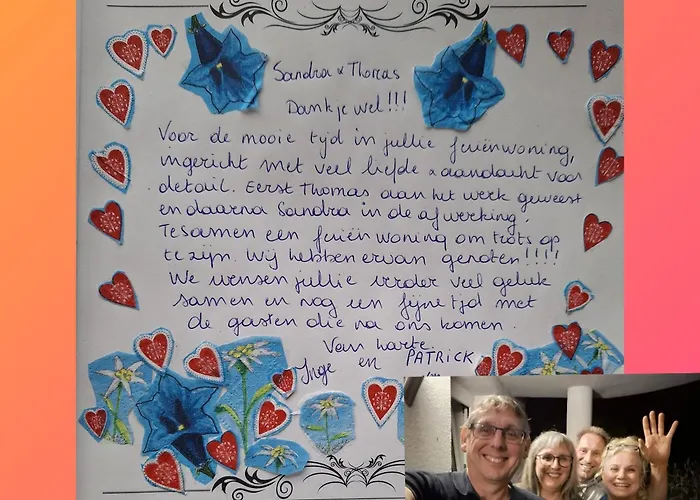 Sandra & Thomas
Dankjewel!!!
Voor de mooie tijd in jullie feriënwoning,
ingericht met veel liefde & aandacht voor
detail. Eerst Thomas aan het werk geweest
en daarna Sandra in de afwerking.
Tesamen een feriënwoning om trots op
te zijn. Wij hebben ervan genoten!!!!
We wensen jullie verder veel geluk
samen en nog een fijne tijd met
de gasten die na ons komen.
Van harte.
Inge en PATRICK